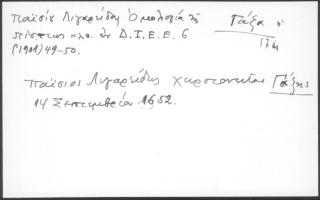 Παϊσίου Λιγαρείδου Ὁμολογία τῆς
πίστεως κλπ. ἐν Δ.Ι.Ε.Ε. 6
(1901) 49-50.
Γάζα
Παΐσιος Λιγαρείδης χειροτονεῖται Γάζης
14 Σεπτεμβρίου 1652.